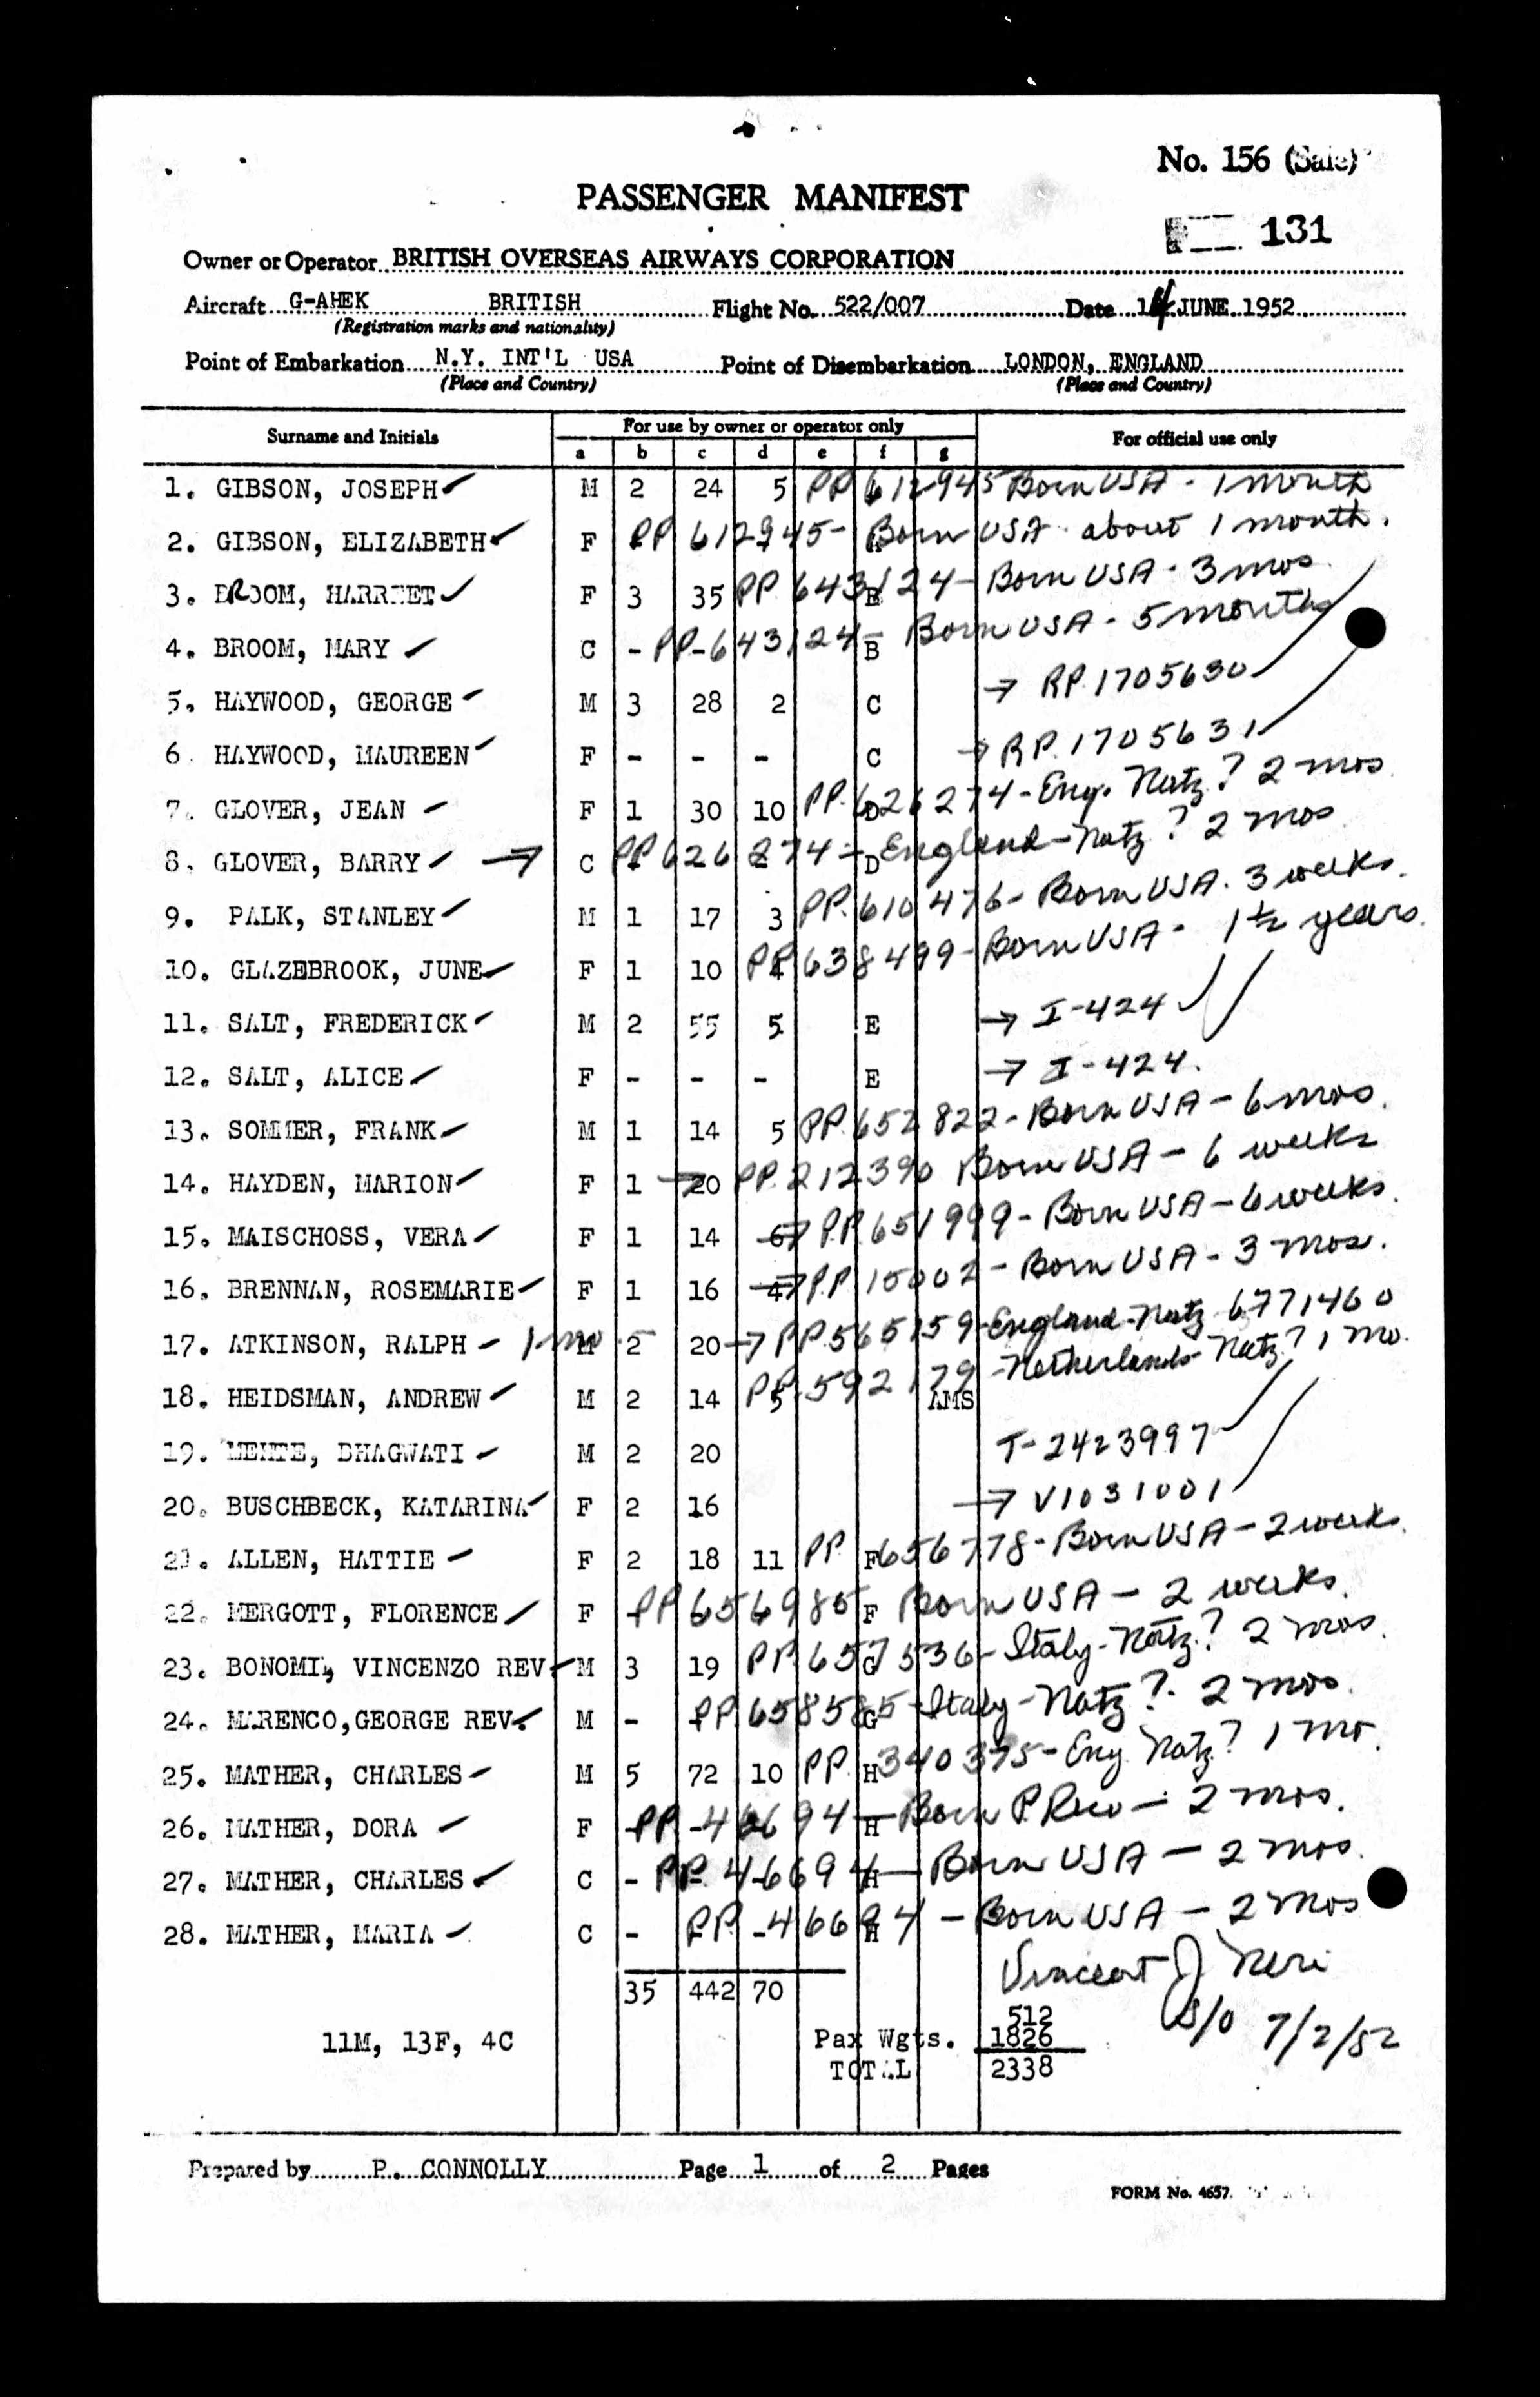 No. 156 (Sale)
PASSENGER MANIFEST
131
Owner or Operator BRITISH OVERSEAS AIRWAYS CORPORATION
Aircraft G-AHEK BRITISH Flight No. 522/007 Date 14 JUNE 1952
(Registration marks and nationality)
Point of Embarkation N.Y. INT'L USA Point of Disembarkation LONDON, ENGLAND
(Place and Country) (Place and Country)
Surname and Initials For use by owner or operator only For official use only
a b c d e f g
1. GIBSON, JOSEPH M 2 24 5 PP 612945 Born USA - 1 month
2. GIBSON, ELIZABETH F PP 612945- Born USA about 1 month.
3. BROOM, HARRIET F 3 35 PP 643124- B Born USA - 3 mos
4. BROOM, MARY C - PP-643124- B Born USA - 5 months
5. HAYWOOD, GEORGE M 3 28 2 C → RP 1705630
6. HAYWOOD, MAUREEN F - - - C → RP. 1705631
7. GLOVER, JEAN F 1 30 10 PP. 626274- D Eng. Natz? 2 mos
8. GLOVER, BARRY → C PP 626274- D England-Natz? 2 mos
9. PALK, STANLEY M 1 17 3 PP. 610476- Born USA. 3 weeks.
10. GLAZEBROOK, JUNE F 1 10 PP 638499- Born USA- 1½ years.
11. SALT, FREDERICK M 2 55 5 E → I-424
12. SALT, ALICE F - - - E → I-424.
13. SOMMER, FRANK M 1 14 5 PP. 652822- Born USA - 6 mos.
14. HAYDEN, MARION F 1 → 20 PP. 212390 Born USA - 6 weeks
15. MAISCHOSS, VERA F 1 14 6 → PP 651999- Born USA - 6 weeks.
16. BRENNAN, ROSEMARIE F 1 16 4 → PP. 15002 - Born USA - 3 mos.
17. ATKINSON, RALPH 1 mo M 2 20 → PP 565159-England-Natz 6771460
18. HEIDSMAN, ANDREW M 2 14 5 PP-592179 AMS -Netherlands Natz? 1 mo.
19. MEHTE, BHAGWATI M 2 20 T-2423997
20. BUSCHBECK, KATARINA F 2 16 → V1031001
21. ALLEN, HATTIE F 2 18 11 PP F 656778- Born USA - 2 weeks.
22. MERGOTT, FLORENCE F - PP 656985 F Born USA - 2 weeks.
23. BONOMI, VINCENZO REV. M 3 19 PP. 657536- G Italy-Natz? 2 mos.
24. MARENCO, GEORGE REV. M - PP 658585 G -Italy-Natz?- 2 mos.
25. MATHER, CHARLES M 5 72 10 PP. H 340375- Eng Natz? 1 mo.
26. MATHER, DORA F - PP-46694 H - Born P. Rico - 2 mos.
27. MATHER, CHARLES C - PP. 46694 H - Born USA - 2 mos.
28. MATHER, MARIA C - PP. -46694 H - Born USA - 2 mos
35 442 70
Vincent J Neri
S/O 7/2/52
512
11M, 13F, 4C Pax Wgts. 1826
TOTAL 2338
Prepared by P. CONNOLLY Page 1 of 2 Pages
FORM No. 4657.